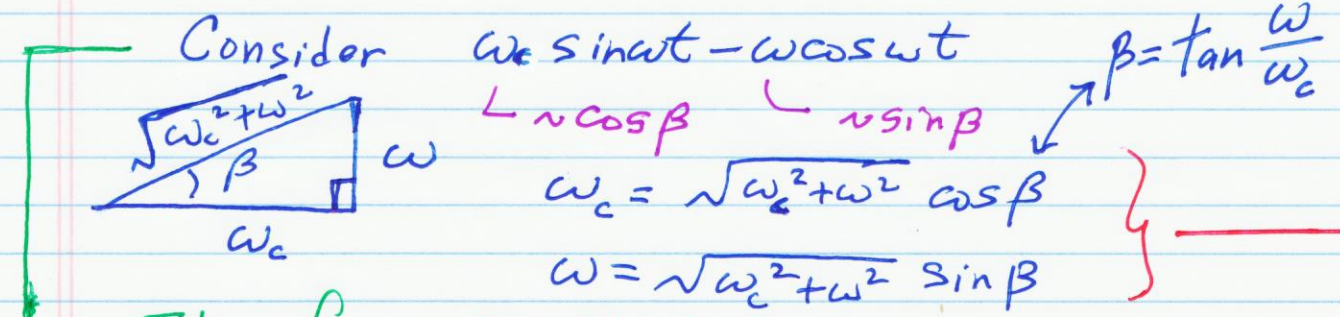 Consider ω_c sinωt - ωcosωt β = tan ω/ω_c
~cosβ ~sinβ
√(ω_c² + ω²)
β
ω
ω_c
ω_c = √(ω_c² + ω²) cosβ
ω = √(ω_c² + ω²) sinβ